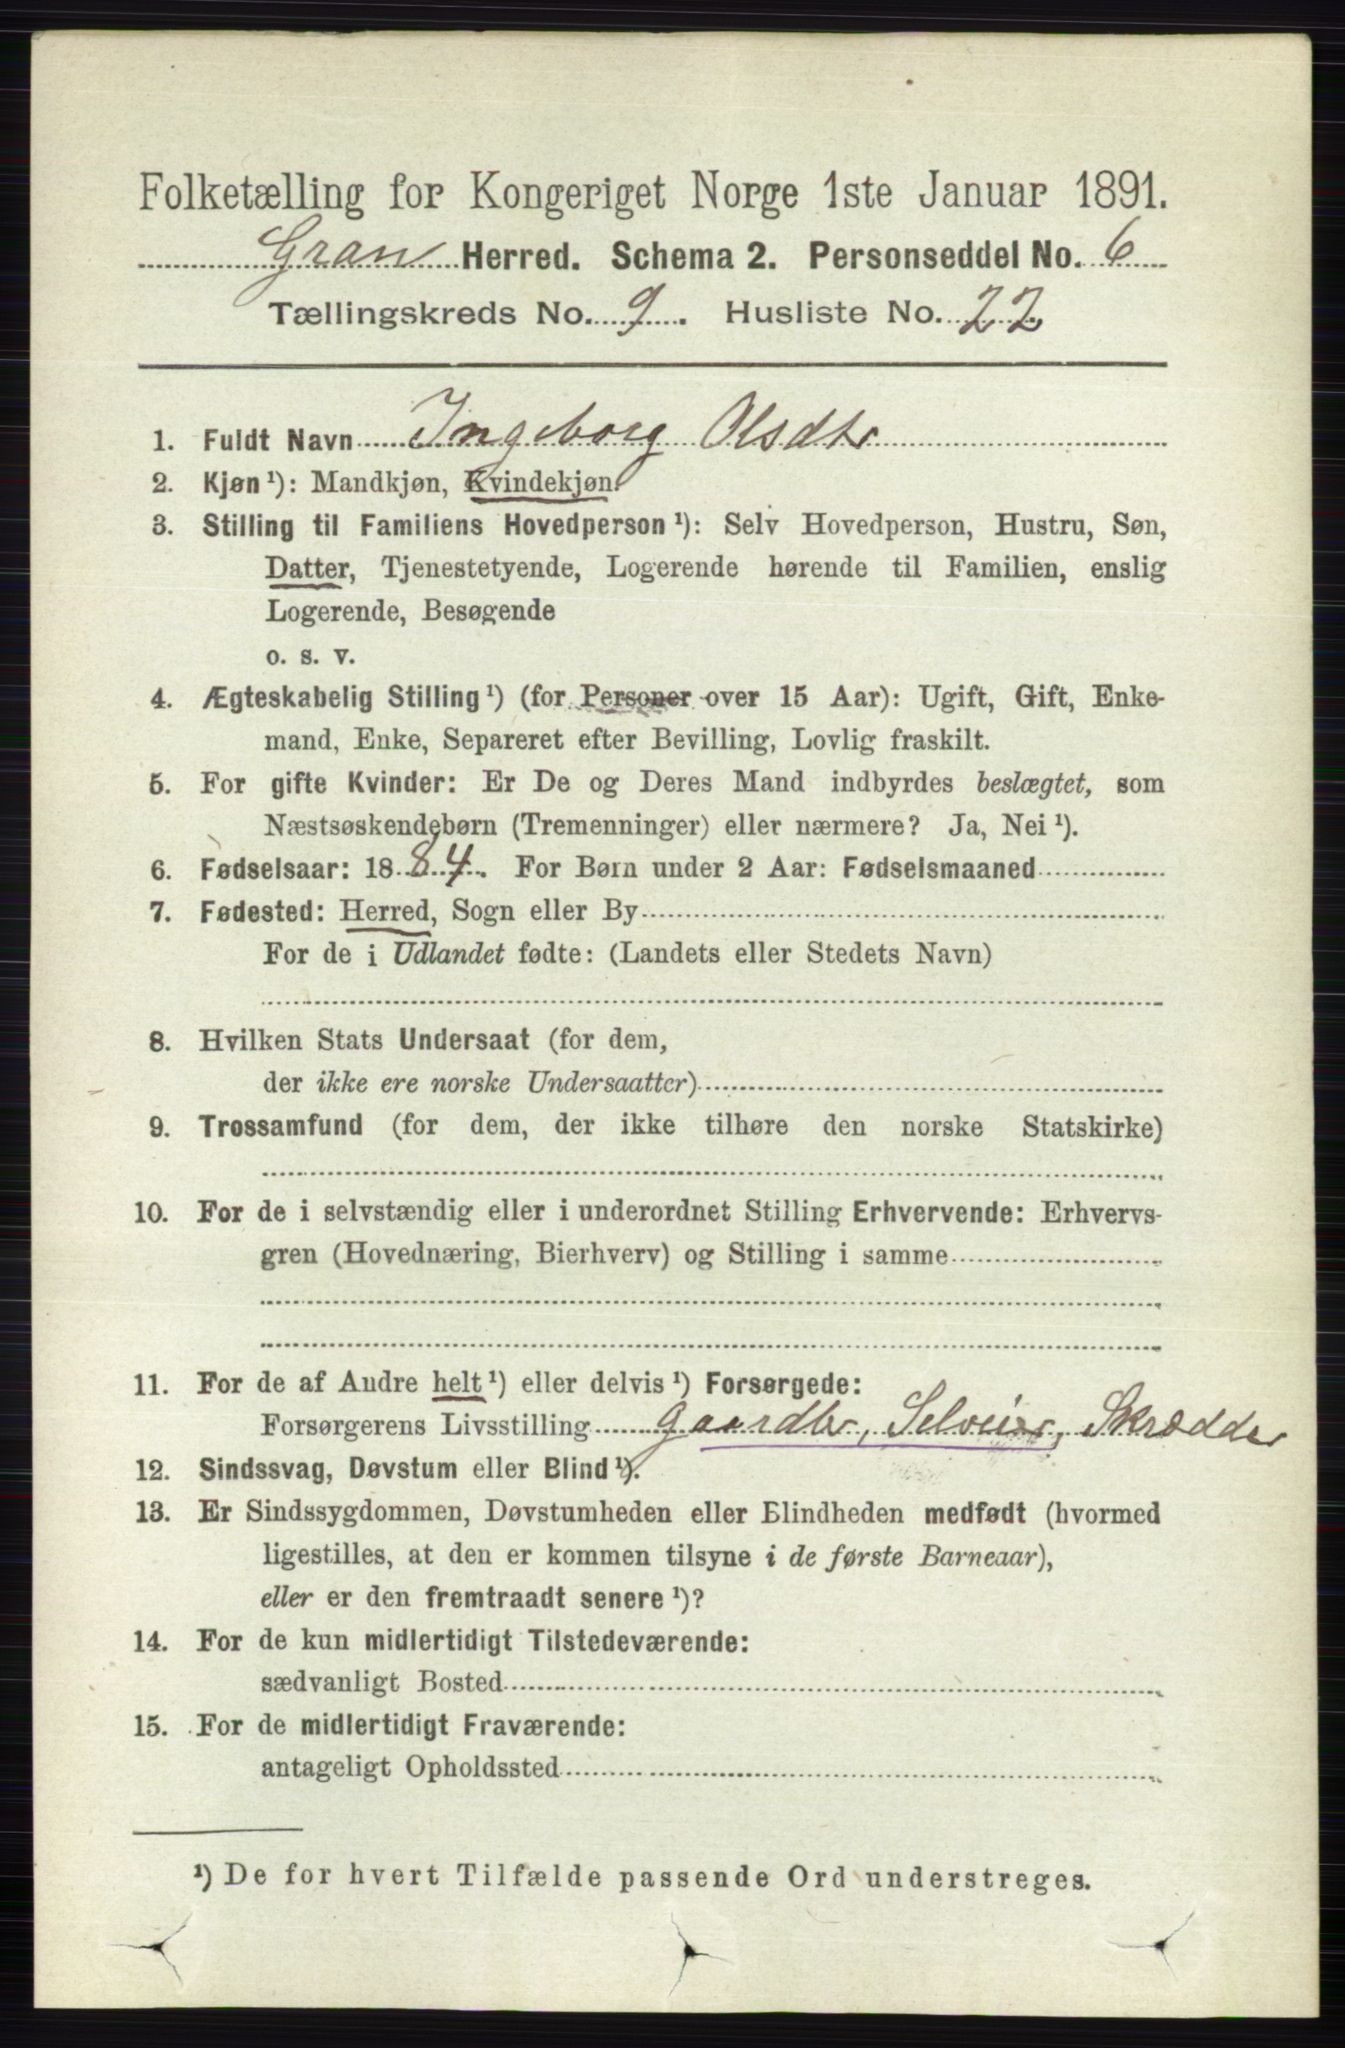 Folketælling for Kongeriget Norge 1ste Januar 1891.
Gran Herred. Schema 2. Personseddel No. 6
Tællingskreds No. 9. Husliste No. 22
1. Fuldt Navn Ingeborg Olsdtr
2. Kjøn ¹): Mandkjøn, Kvindekjøn.
3. Stilling til Familiens Hovedperson ¹): Selv Hovedperson, Hustru, Søn,
Datter, Tjenestetyende, Logerende hørende til Familien, enslig
Logerende, Besøgende
o. s. v.
4. Ægteskabelig Stilling ¹) (for Personer over 15 Aar): Ugift, Gift, Enke-
mand, Enke, Separeret efter Bevilling, Lovlig fraskilt.
5. For gifte Kvinder: Er De og Deres Mand indbyrdes beslægtet, som
Næstsøskendebørn (Tremenninger) eller nærmere? Ja, Nei ¹).
6. Fødselsaar: 1884. For Børn under 2 Aar: Fødselsmaaned
7. Fødested: Herred, Sogn eller By
For de i Udlandet fødte: (Landets eller Stedets Navn)
8. Hvilken Stats Undersaat (for dem,
der ikke ere norske Undersaatter)
9. Trossamfund (for dem, der ikke tilhøre den norske Statskirke)
10. For de i selvstændig eller i underordnet Stilling Erhvervende: Erhvervs-
gren (Hovednæring, Bierhverv) og Stilling i samme
11. For de af Andre helt ¹) eller delvis ¹) Forsørgede:
Forsørgerens Livsstilling Gaardbr, Selveier, Skrædder
12. Sindssvag, Døvstum eller Blind ¹).
13. Er Sindssygdommen, Døvstumheden eller Blindheden medfødt (hvormed
ligestilles, at den er kommen tilsyne i de første Barneaar),
eller er den fremtraadt senere ¹)?
14. For de kun midlertidigt Tilstedeværende:
sædvanligt Bosted
15. For de midlertidigt Fraværende:
antageligt Opholdssted
¹) De for hvert Tilfælde passende Ord understreges.